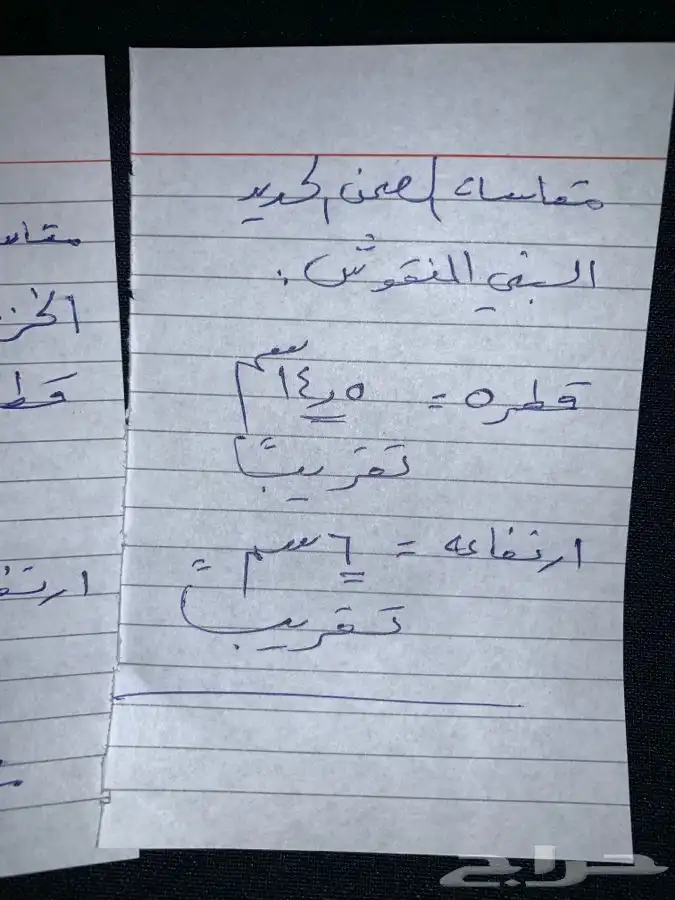 مقاسات الصحن الحديد
البني المنقوش .
قطره = ١٤٫٥ سم
تقريباً
ارتفاعه = ٦ سم
تقريباً
مقاس
الخز
قط
ارتف
حراج